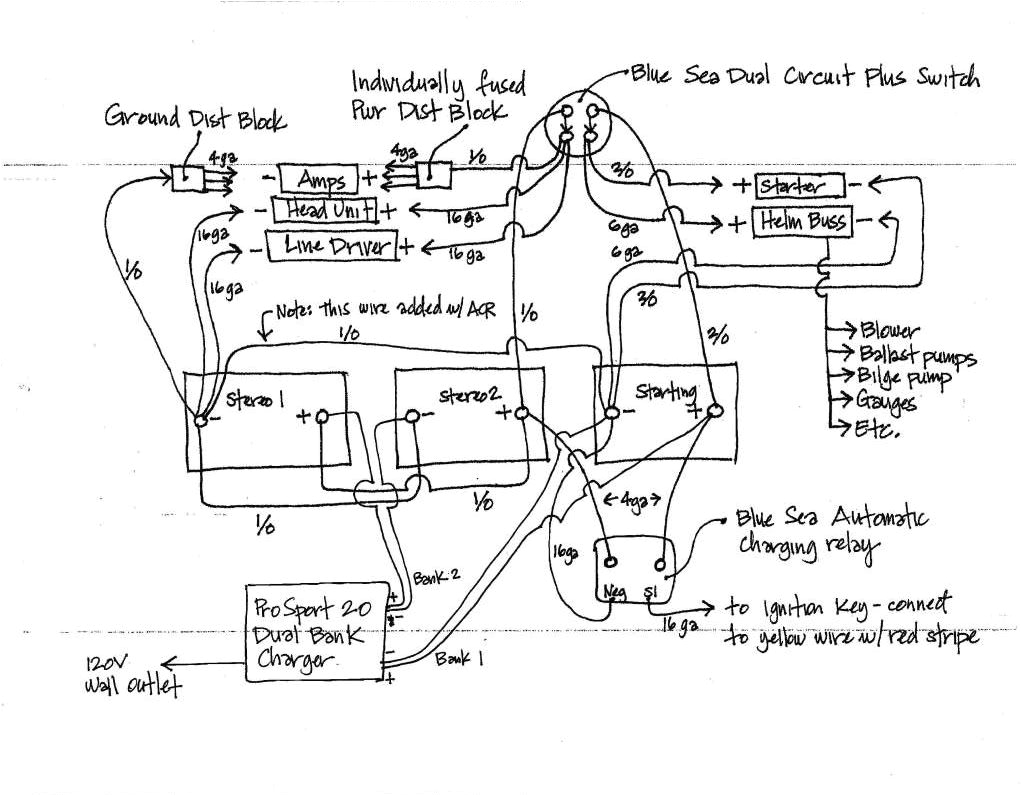 Blue Sea Dual Circuit Plus Switch
Individually fused
Pwr Dist Block
Ground Dist Block
4ga
4ga
1/0
2/0
- Amps +
+ Starter -
- Head Unit +
16ga
6ga
+ Helm Buss -
16ga
- Line Driver +
16ga
6ga
1/0
16ga
2/0
Note: this wire added w/ ACR
1/0
1/0
2/0
Blower
Ballast pumps
Bilge pump
Gauges
Etc.
Stereo 1
- +
Stereo 2
- +
Starting
- +
1/0
1/0
4ga
Blue Sea Automatic
charging relay
16ga
Neg SI
16 ga
to Ignition Key - connect
to yellow wire w/ red stripe
Bank 2
Bank 1
ProSport 20
Dual Bank
Charger.
+
-
-
+
120V
Wall outlet